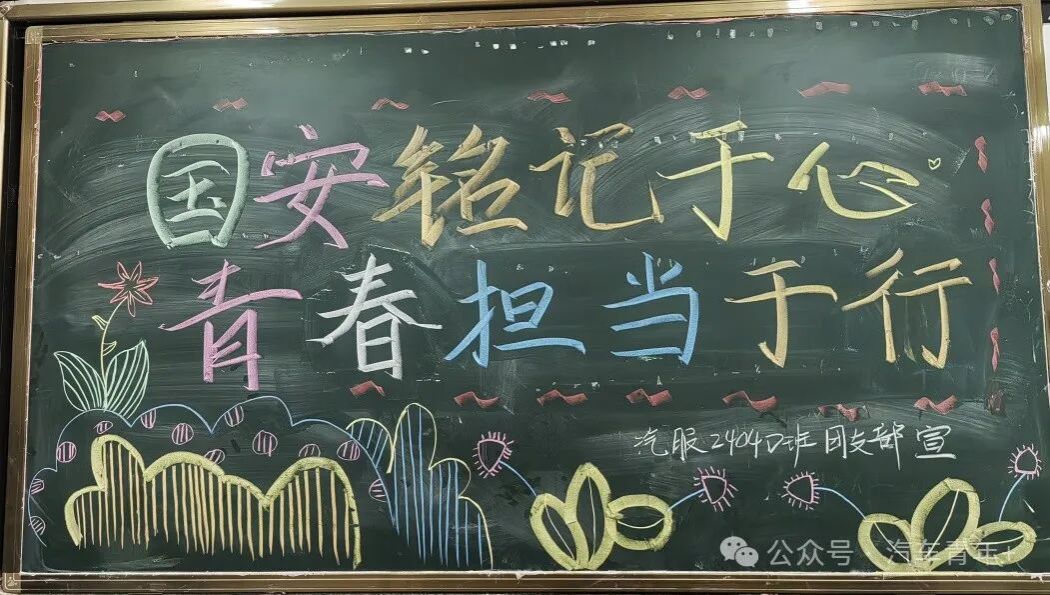 国安铭记于心
青春担当于行
汽服2404D班团支部 宣
公众号 汽车青年+